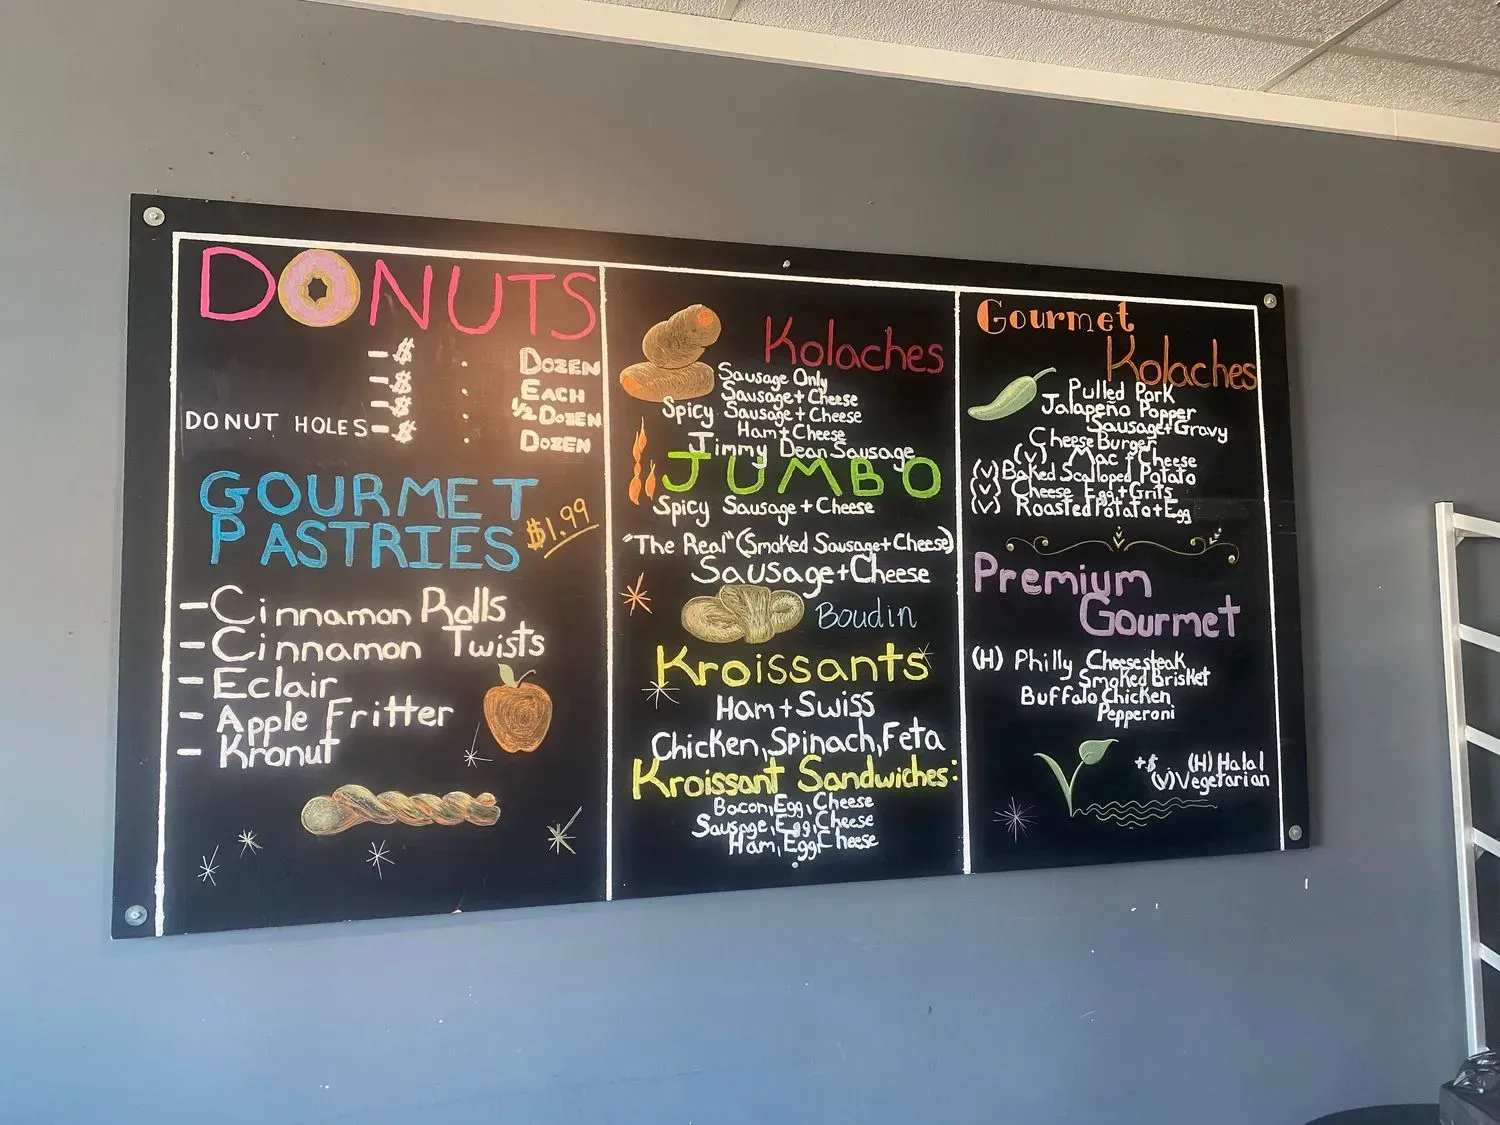 DONUTS
- $ . DOZEN
- $ . EACH
- $ . 1/2 DOZEN
DONUT HOLES - $ . DOZEN
GOURMET
PASTRIES $1.99
- Cinnamon Rolls
- Cinnamon Twists
- Eclair
- Apple Fritter
- Kronut
Kolaches
Sausage Only
Sausage + Cheese
Spicy Sausage + Cheese
Ham + Cheese
Jimmy Dean Sausage
JUMBO
Spicy Sausage + Cheese
"The Real" (Smoked Sausage + Cheese)
Sausage + Cheese
Boudin
Kroissants
Ham + Swiss
Chicken, Spinach, Feta
Kroissant Sandwiches:
Bacon, Egg, Cheese
Sausage, Egg, Cheese
Ham, Egg, Cheese
Gourmet
Kolaches
Pulled Pork
Jalapeño Popper
Sausage + Gravy
Cheese Burger
(V) Mac + Cheese
(V) Baked Scalloped Potato
(V) Cheese Egg + Grits
(V) Roasted Potato + Egg
Premium
Gourmet
(H) Philly Cheesesteak
Smoked Brisket
Buffalo Chicken
Pepperoni
+$ (H) Halal
(V) Vegetarian